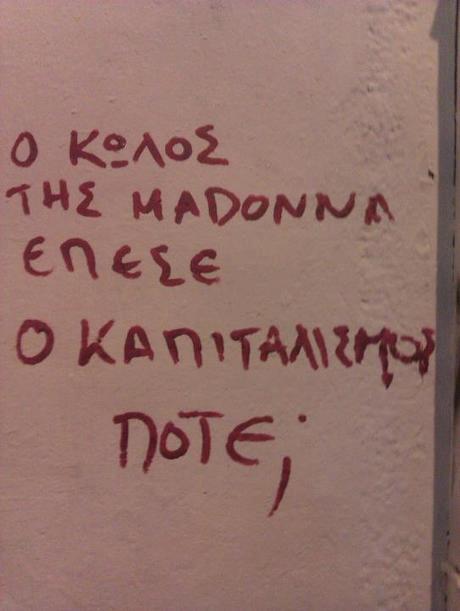 Ο ΚΩΛΟΣ
ΤΗΣ MADONNA
ΕΠΕΣΕ
Ο ΚΑΠΙΤΑΛΙΣΜΟΣ
ΠΟΤΕ;